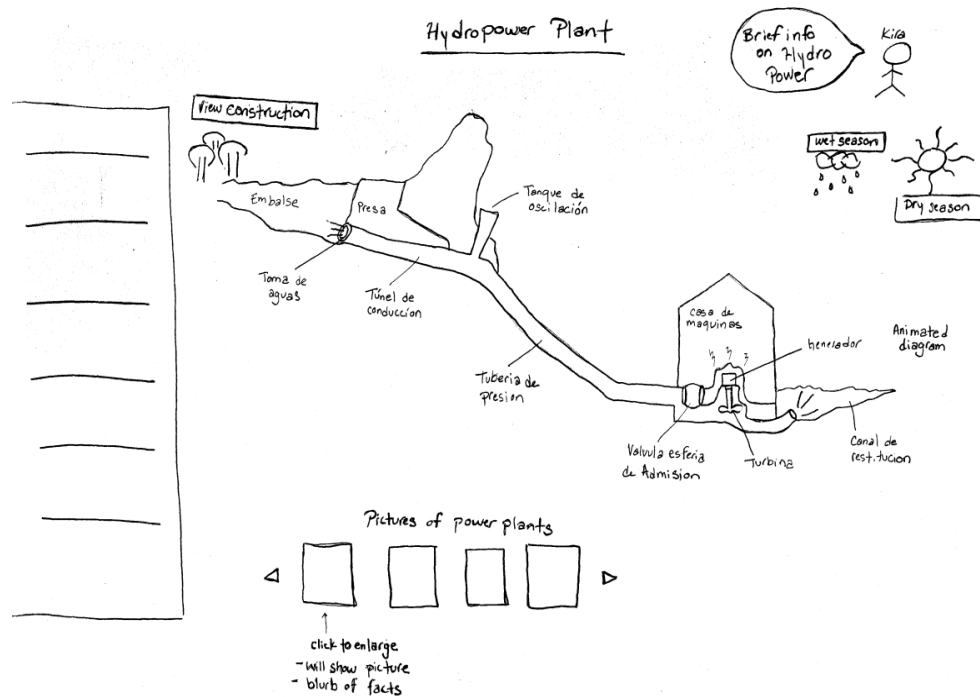 Hydropower Plant
Brief info
on Hydro
Power
Kira
View Construction
wet season
Dry season
Embalse
Presa
Tanque de
oscilación
Toma de
aguas
Túnel de
conduccion
Tuberia de
presion
casa de
maquinas
Generador
Animated
diagram
Valvula esferia
de Admision
Turbina
Canal de
restitucion
Pictures of power plants
click to enlarge
- will show picture
- blurb of facts